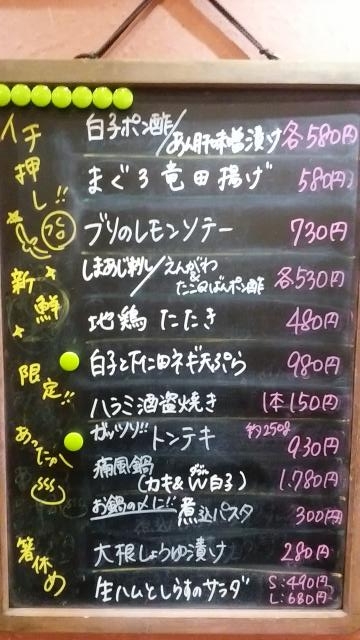 イチ押し!!
白子ポン酢/あん肝味噌漬け 各580円
まぐろ竜田揚げ 580円
ブリのレモンソテー 730円
新鮮
しまあじ刺し/えんがわ&たこのばんポン酢 各530円
地鶏たたき 480円
限定!!
白子と下仁田ネギ天ぷら 980円
ハラミ酒盗焼き 1本150円
あったか〜
ガッツリ!!トンテキ 約250g 930円
痛風鍋(カキ&W白子) 1.780円
お鍋の〆に!!煮込パスタ 300円
箸休め
大根しょうゆ漬け 280円
生ハムとしらすのサラダ S:490円 L:680円